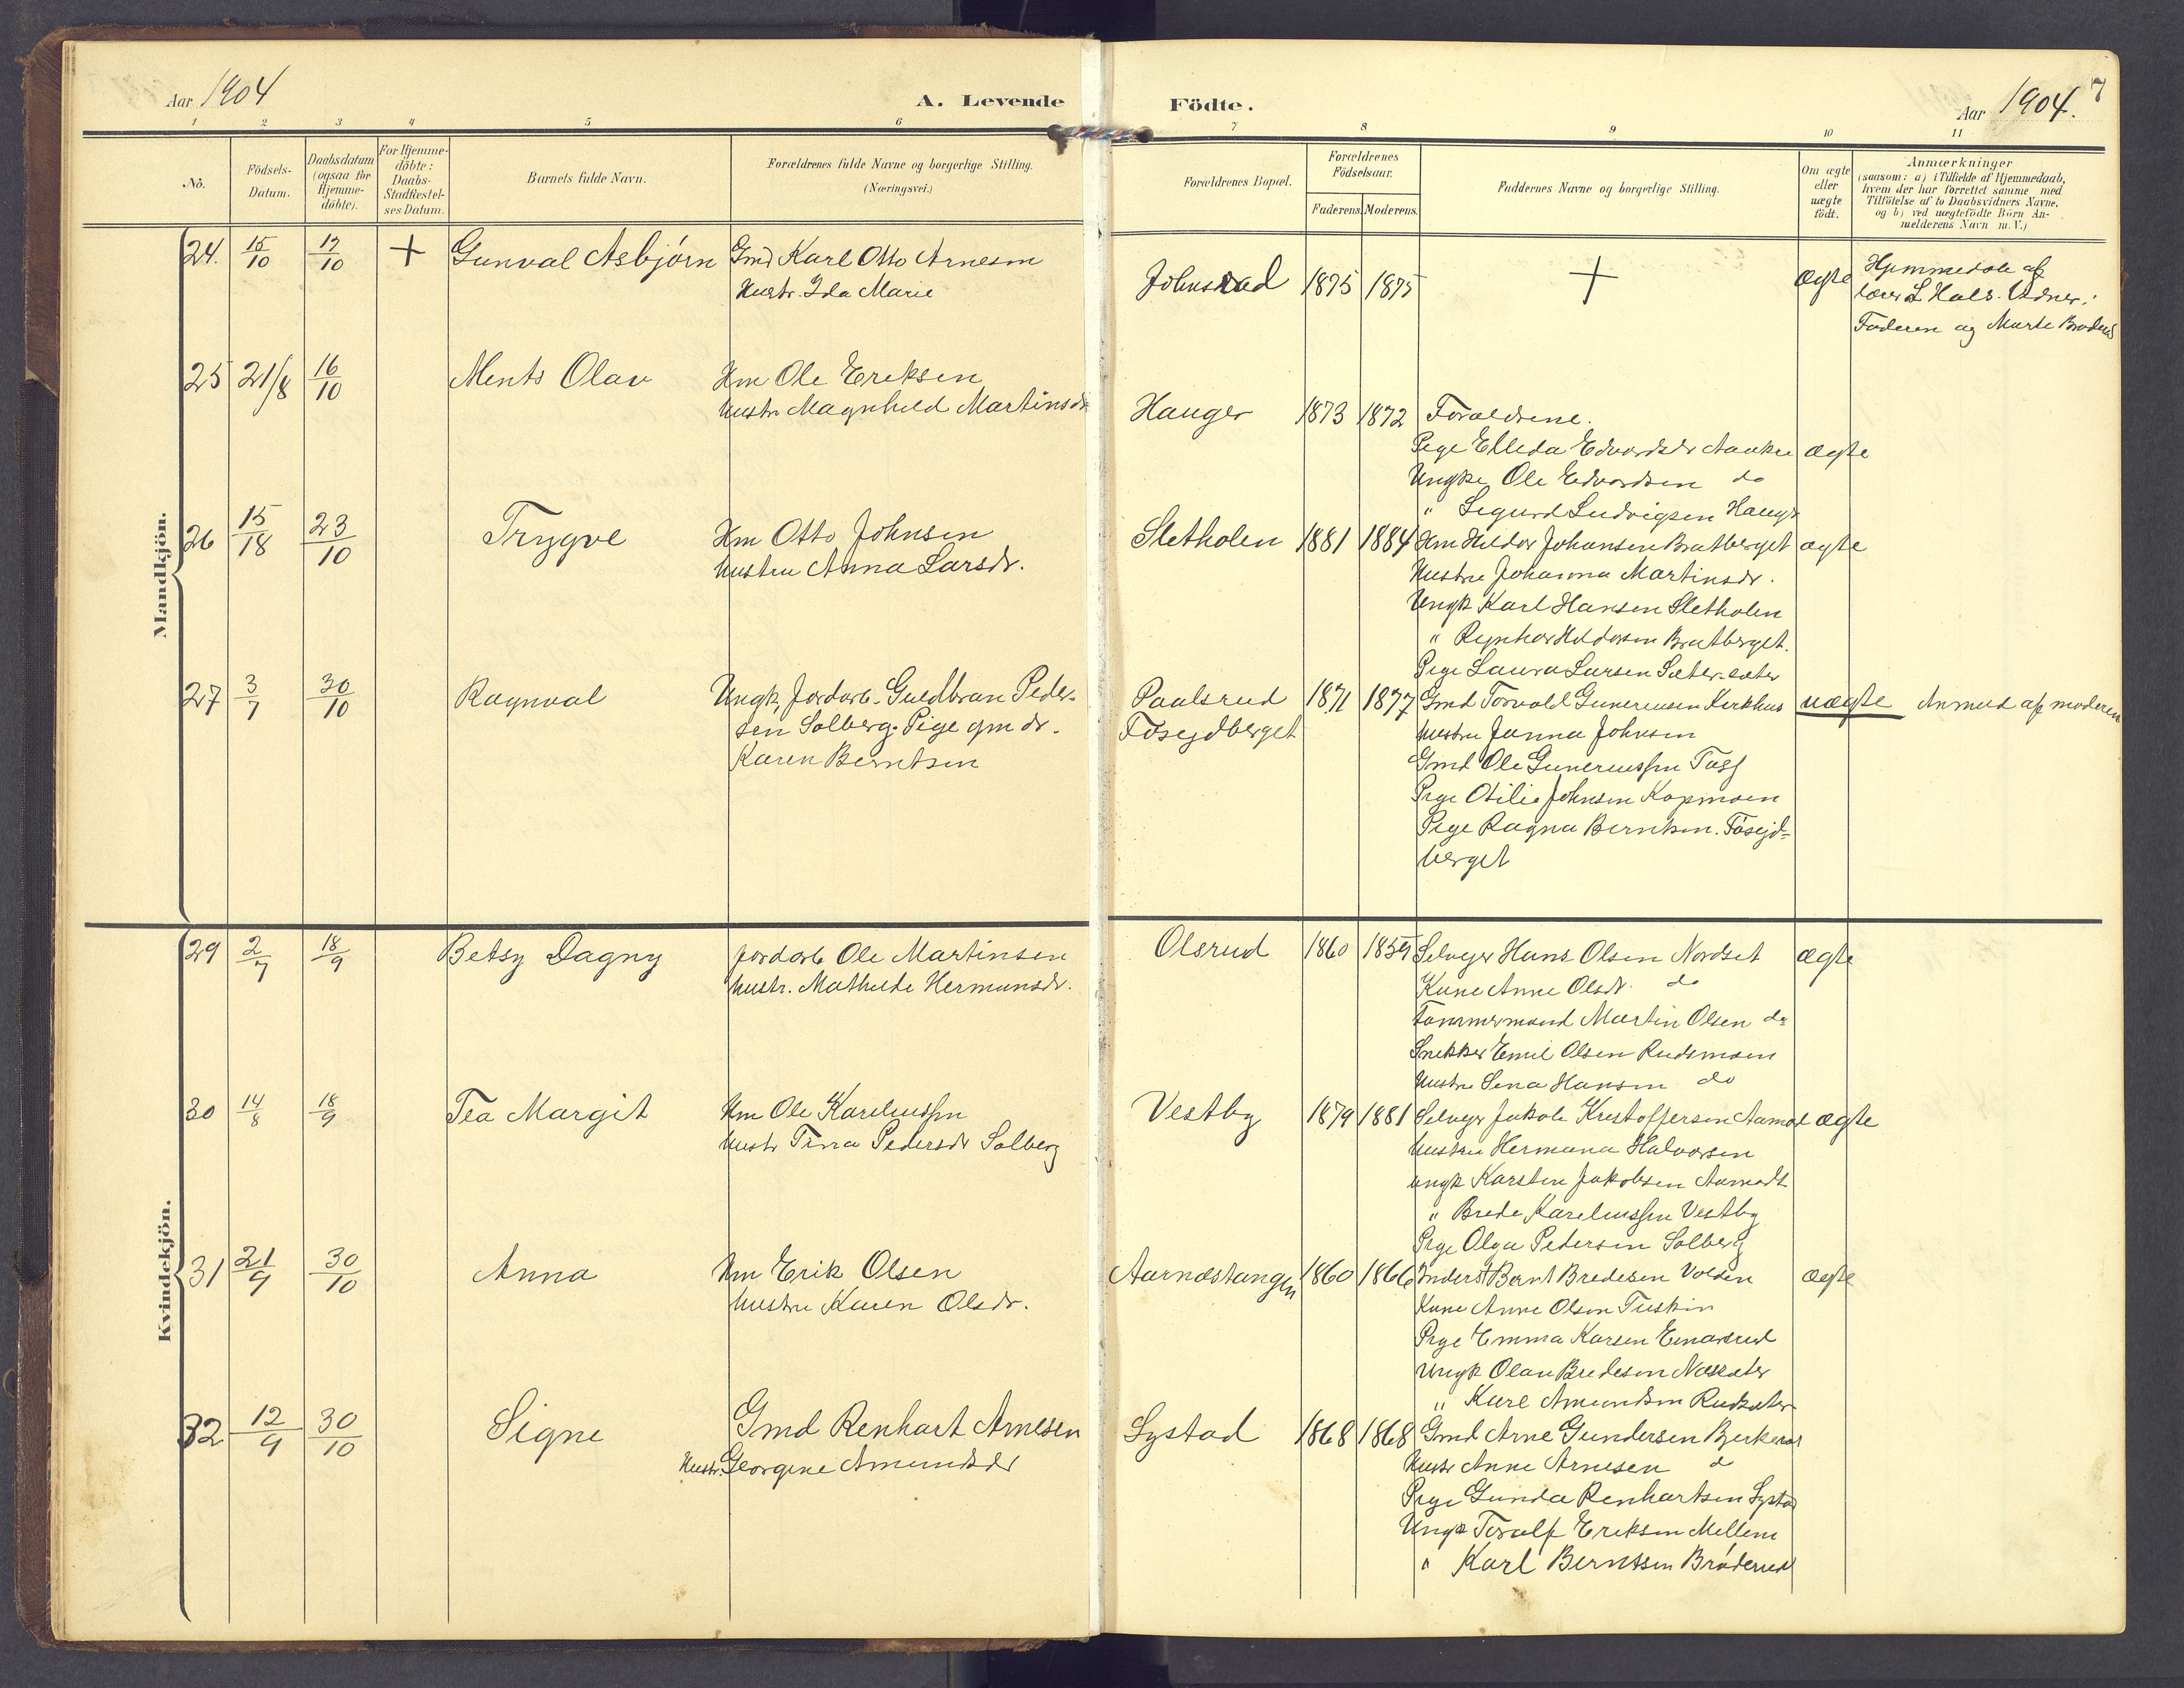 Aar 1904
A. Levende
Födte.
Aar 1904.
7
1 2 3 4 5 6 7 8 9 10 11
No.
Födsels-
Datum.
Daabsdatum
(ogsaa for
Hjemme-
döbte).
For Hjemme-
döbte:
Daabs-
Stadfæstel-
ses Datum.
Barnets fulde Navn.
Forældrenes fulde Navne og borgerlige Stilling.
(Næringsvei.)
Forældrenes Bopæl.
Forældrenes
Födselsaar.
Faderens. Moderens.
Faddernes Navne og borgerlige Stilling.
Om ægte
eller
uægte
födt.
Anmærkninger
(saasom: a) i Tilfælde af Hjemmedaab,
hvem der har forrettet samme med
Tilföielse af to Daabsvidners Navne.
og b) ved uægtefödte Börn An-
melderens Navn m. V.)
Mandkjön.
24. 15/10 17/10 + Gunval Asbjørn Gmd Karl Otto Arnesen
Hustr. Ida Marie
Johnsrud 1875 1875 + Ægte
Hjemmedøb af
lærer L Hals. Vidner:
Faderen og Marte
25 21/8 16/10 Ments Olav Hm Ole Eriksen
Hustr Magnhild Martinsdr
Hauger 1873 1872 Forældrene.
Pige Elleda Edvardsdr Aaukre ægte
Ungkr Ole Edvardsen do
" Sigurd Ludvigsen Hauger
26 15/18 23/10 Trygve Hm Otto Johnsen
Hustru Anna Larsdr.
Sletholen 1881 1884 Hm Hildor Johansen Bratberget ægte
Hustru Johanna Martinsdr.
Ungk Karl Hansen Sletholen
" Reynhar Hildorsen Bratberget.
Pige Laura Larsen Sæter-sæter
27 3/7 30/10 Ragnval Ungk, Jordarb. Guldbran Peder-
sen Solberg. Pige gmdr.
Karen Berntsen
Paalsrud 1871 1877 Gmd Torvald Gunerius­sen Kirkhus uægte Anmed af moderen
Fosejdberget
Hustru Janna Johnsen
Gmd Ole Guneriussen Foss
Pige Otilie Johnsen Kopmoen
Pige Ragna Berntsen. Fosejd-
berget
Kvindekjön.
29 2/7 18/9 Betsy Dagny Jordarb Ole Martinsen
Hustr. Mathilde Hermunsdr.
Olsrud 1860 1859 Selveyer Hans Olsen Nordset ægte
Kune Anne Olsdr. do
Tømmermand Martin Olsen do
Snekker Emil Olsen Rudsmoen
Hustru Lena Hansen do
30 14/8 18/9 Tea Margit Hm Ole Kareliussen
Hustr Tina Pedersdr Solberg
Vestby 1879 1881 Selveyr Jakob Kristoffersen Aamodt ægte
Hustru Hermana Halvorsen
ungk Karsten Jakobsen Aamodt
" Brede Kareliussen Vestby
Pige Olga Pedersen Solberg
31 21/9 30/10 Anna Hm Erik Olsen
Hustru Karen Olsdr.
Aarnestangen 1860 1866 Inderst Bernt Bredesen Volden ægte
Kone Anne Olsen Tuskin
Pige Emma Karsen Einarsrud
Ungk Olav Bredesen Næssæter
" Karl Amundsen Rudsæter
32 12/9 30/10 Signe Gmd Renhart Arnesen
Hustr. Georgine Amundsdr
Systad 1868 1868 Gmd Arne Gundersen Bjerkerør
Hustr Anne Arnesen do
Pige Gunda Renhartsen Systad
Ungk Toralf Eriksen Mellem
" Karl Berntsen Brøderud